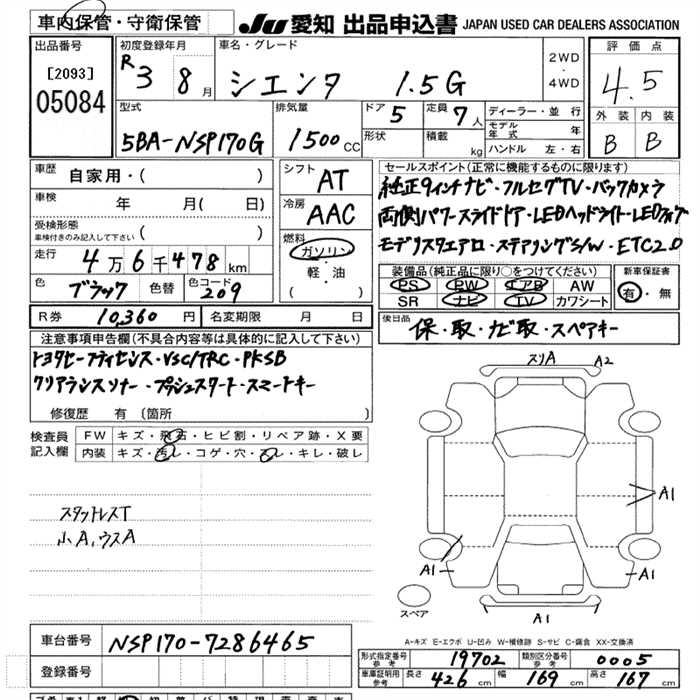 車内保管・守衛保管
JU 愛知 出品申込書 JAPAN USED CAR DEALERS ASSOCIATION
出品番号
[2093]
05084
初度登録年月
R3 8月
車名・グレード
シエンタ 1.5G
2WD
・
4WD
評価点
4.5
型式
5BA-NSP170G
排気量
1500CC
ドア 5
形状
定員 7人
積載 kg
ディーラー・並行
モデル年式 年
ハンドル 左・右
外装 内装
B B
車歴 自家用・( )
車検 年 月( 日)
受検形態
車検付きのみ記入して下さい ( )
走行 4万6千478km
色 ブラック 色替 色コード 209
R券 10,360円 名変期限 月 日
シフト AT
冷房 AAC
燃料
ガソリン
・
軽・油
( )
セールスポイント(正常に機能するものに限ります)
純正9インチナビ・フルセグTV・バックカメラ
両側パワースライドドア・LEDヘッドライト・LEDフォグ
モデリスタエアロ・ステアリングS/W・ETC2.0
装備品(純正品に限り○をつけてください)
PS PW エアB AW
SR ナビ TV カワシート
新車保証書
有・無
後日品
保・取・ナビ取・スペアキー
注意事項申告欄(不具合内容等は具体的に記入して下さい)
トヨタセーフティセンス・VSC/TRC・PKSB
クリアランスソナー・プッシュスタート・スマートキー
修復歴 有(箇所 )
検査員記入欄
FW キズ・飛石・ヒビ割・リペア跡・X要
内装 キズ・汚レ・コゲ・穴・スレ・キレ・破レ
スタットレスT
小A,ウスA
スリA A2
A1
A1 A1
スペア
A1
A-キズ E-エクボ U-凹み W-補修跡 S-サビ C-腐食 XX-交換済
車台番号 NSP170-7286465
登録番号
形式指定番号 参考 19702 類別区分番号 参考 0005
車庫証明用 参考 長さ 426cm 幅 169cm 高さ 167cm